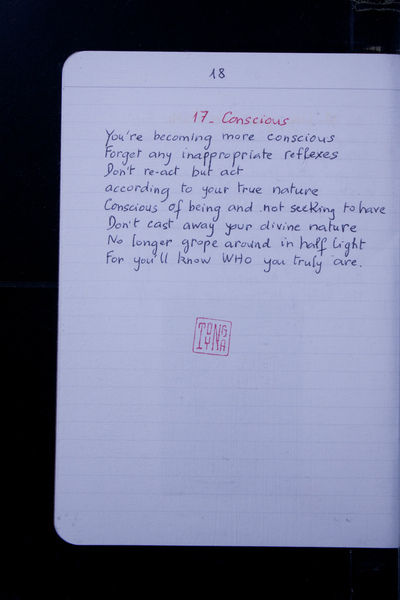 18
17_ Conscious
You're becoming more conscious
Forget any inappropriate reflexes
Don't re-act but act
according to your true nature
Conscious of being and not seeking to have
Don't cast away your divine nature
No longer grope around in half light
For you'll know WHO you truly are.